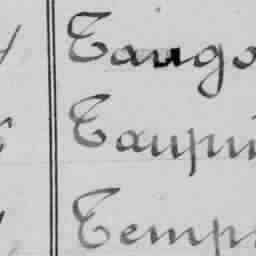 Tango
Taupi
Temp